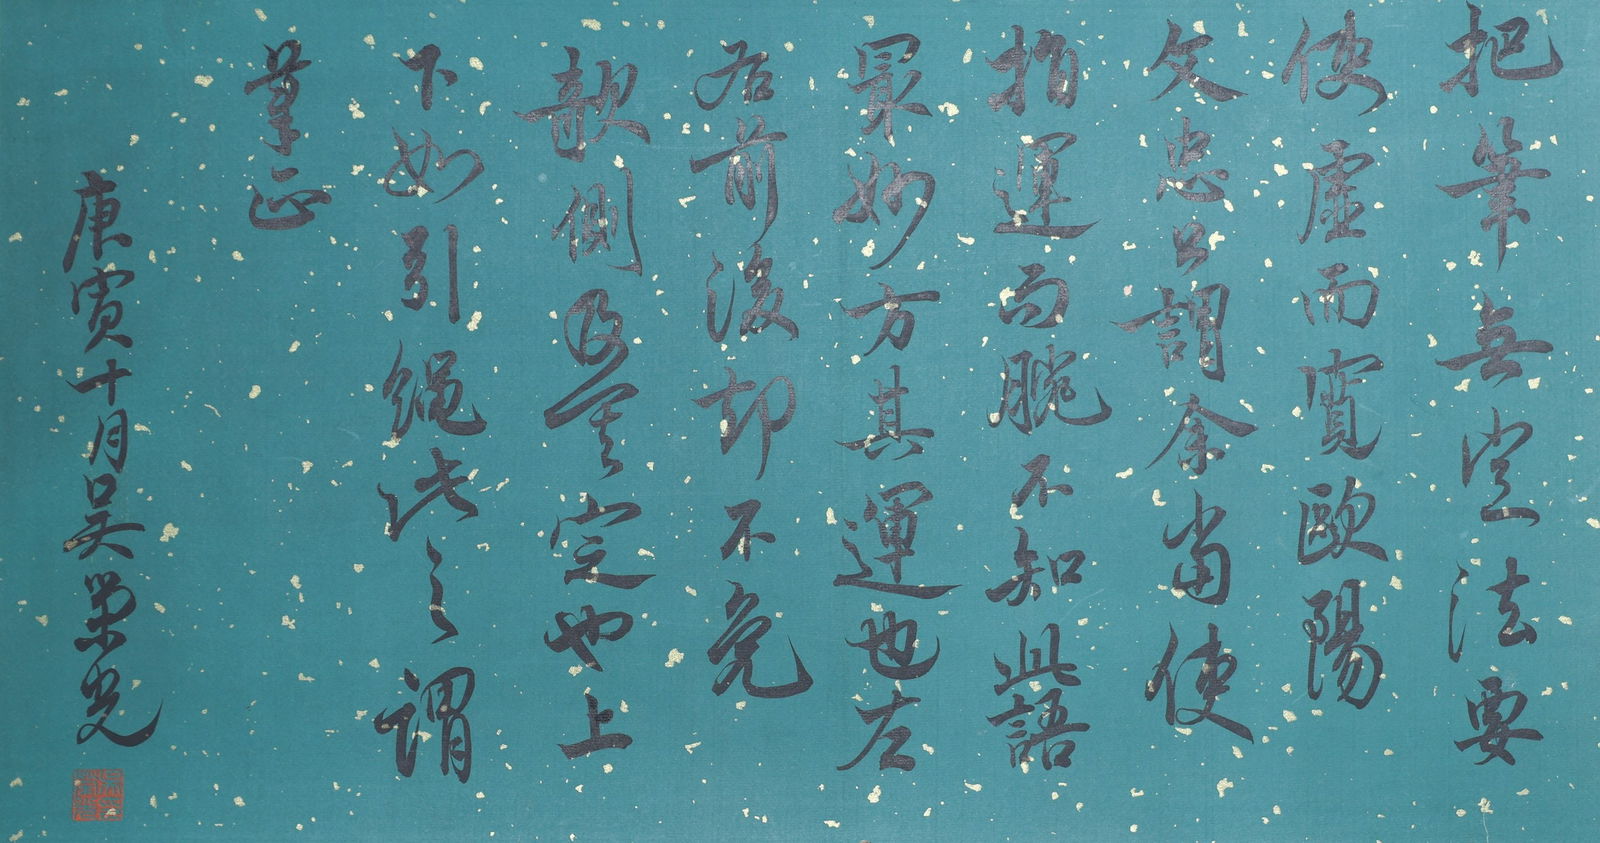 把筆無定法要
使虛而寬歐陽
文忠公謂余當使
指運而腕不知此語
最妙方其運也左
右前後却不免
欹側及其定也上
下如引繩此之謂
筆正
庚寅十月吴榮光